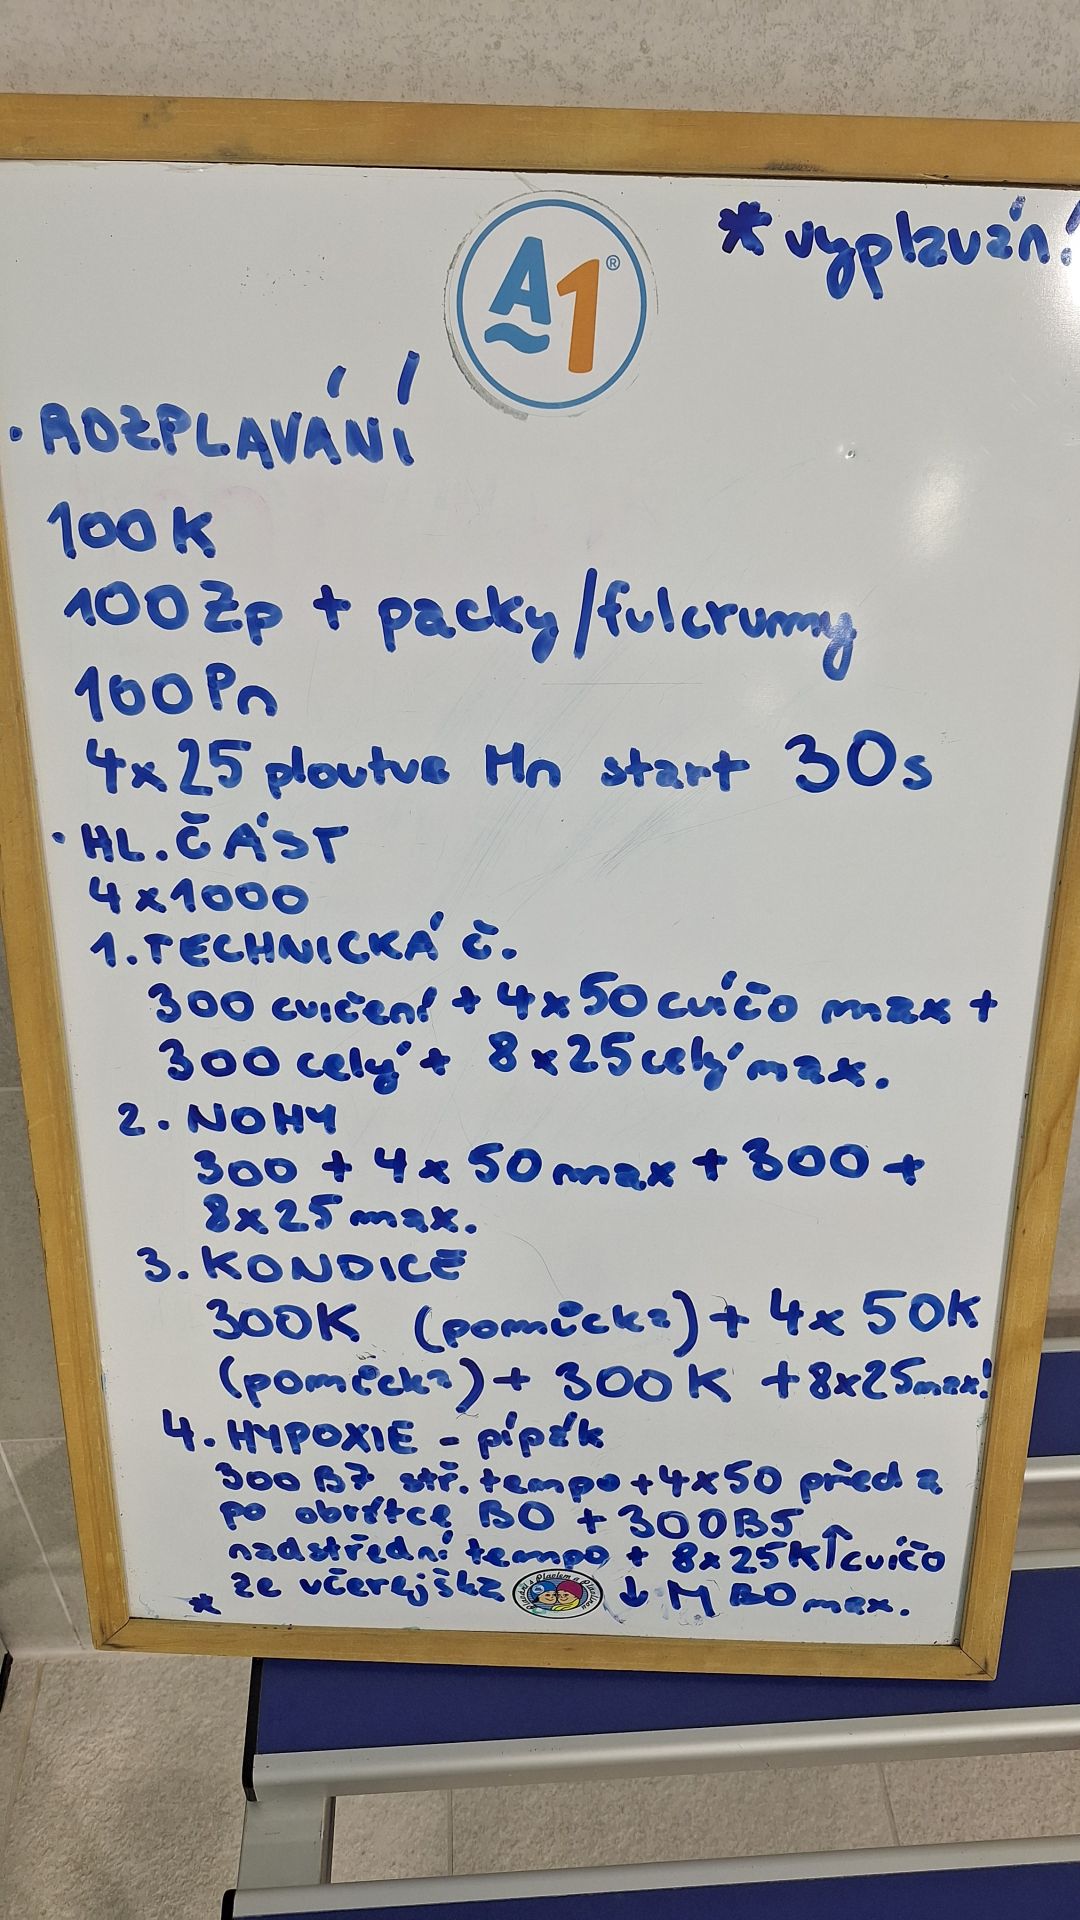 * vyplaván!
A1®
• ROZPLAVÁNÍ
100K
100Zp + packy/fulcrumy
100Pn
4x25 ploutve Mn start 30s
• HL. ČÁST
4x1000
1. TECHNICKÁ Č.
300 cvičení + 4x50 cvíčo max +
300 celý + 8x25 celý max.
2. NOHY
300 + 4x50 max + 300 +
8x25 max.
3. KONDICE
300K (pomůcka) + 4x50K
(pomůcka) + 300K + 8x25 max!
4. HYPOXIE - pípák
300 B7 stř. tempo + 4x50 před a
po obrátce B0 + 300B5
nadstřední tempo + 8x25K↑cvíčo
* ze včerejška ↓ M B0 max.